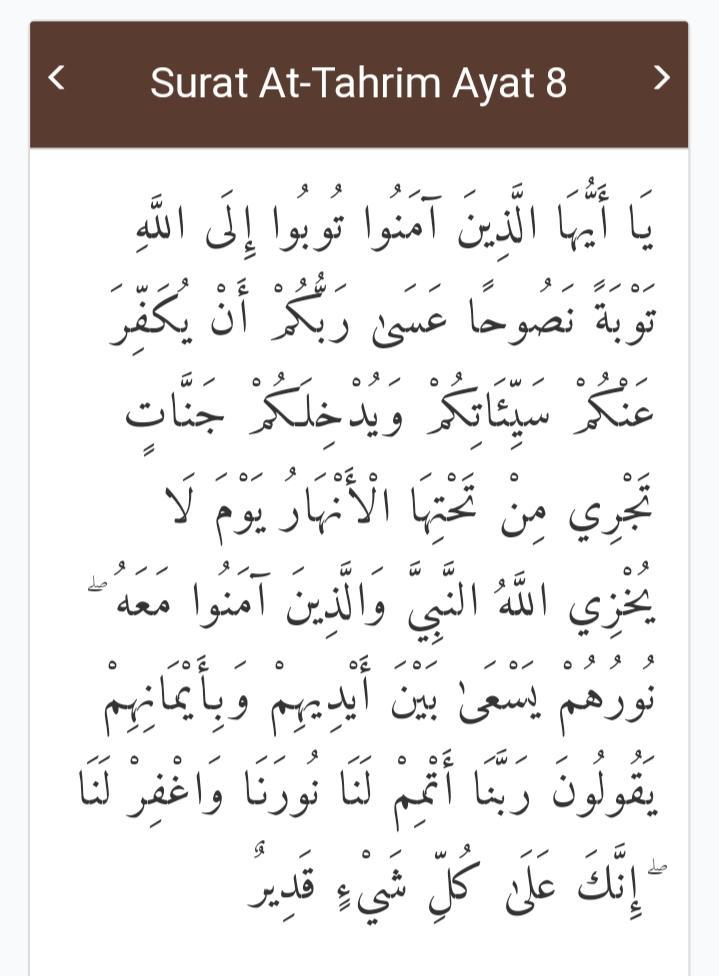 Surat At-Tahrim Ayat 8
يَا أَيُّهَا الَّذِينَ آمَنُوا تُوبُوا إِلَى اللَّهِ
تَوْبَةً نَصُوحًا عَسَىٰ رَبُّكُمْ أَنْ يُكَفِّرَ
عَنْكُمْ سَيِّئَاتِكُمْ وَيُدْخِلَكُمْ جَنَّاتٍ
تَجْرِي مِنْ تَحْتِهَا الْأَنْهَارُ يَوْمَ لَا
يُخْزِي اللَّهُ النَّبِيَّ وَالَّذِينَ آمَنُوا مَعَهُ ۖ
نُورُهُمْ يَسْعَىٰ بَيْنَ أَيْدِيهِمْ وَبِأَيْمَانِهِمْ
يَقُولُونَ رَبَّنَا أَتْمِمْ لَنَا نُورَنَا وَاغْفِرْ لَنَا
ۖ إِنَّكَ عَلَىٰ كُلِّ شَيْءٍ قَدِيرٌ